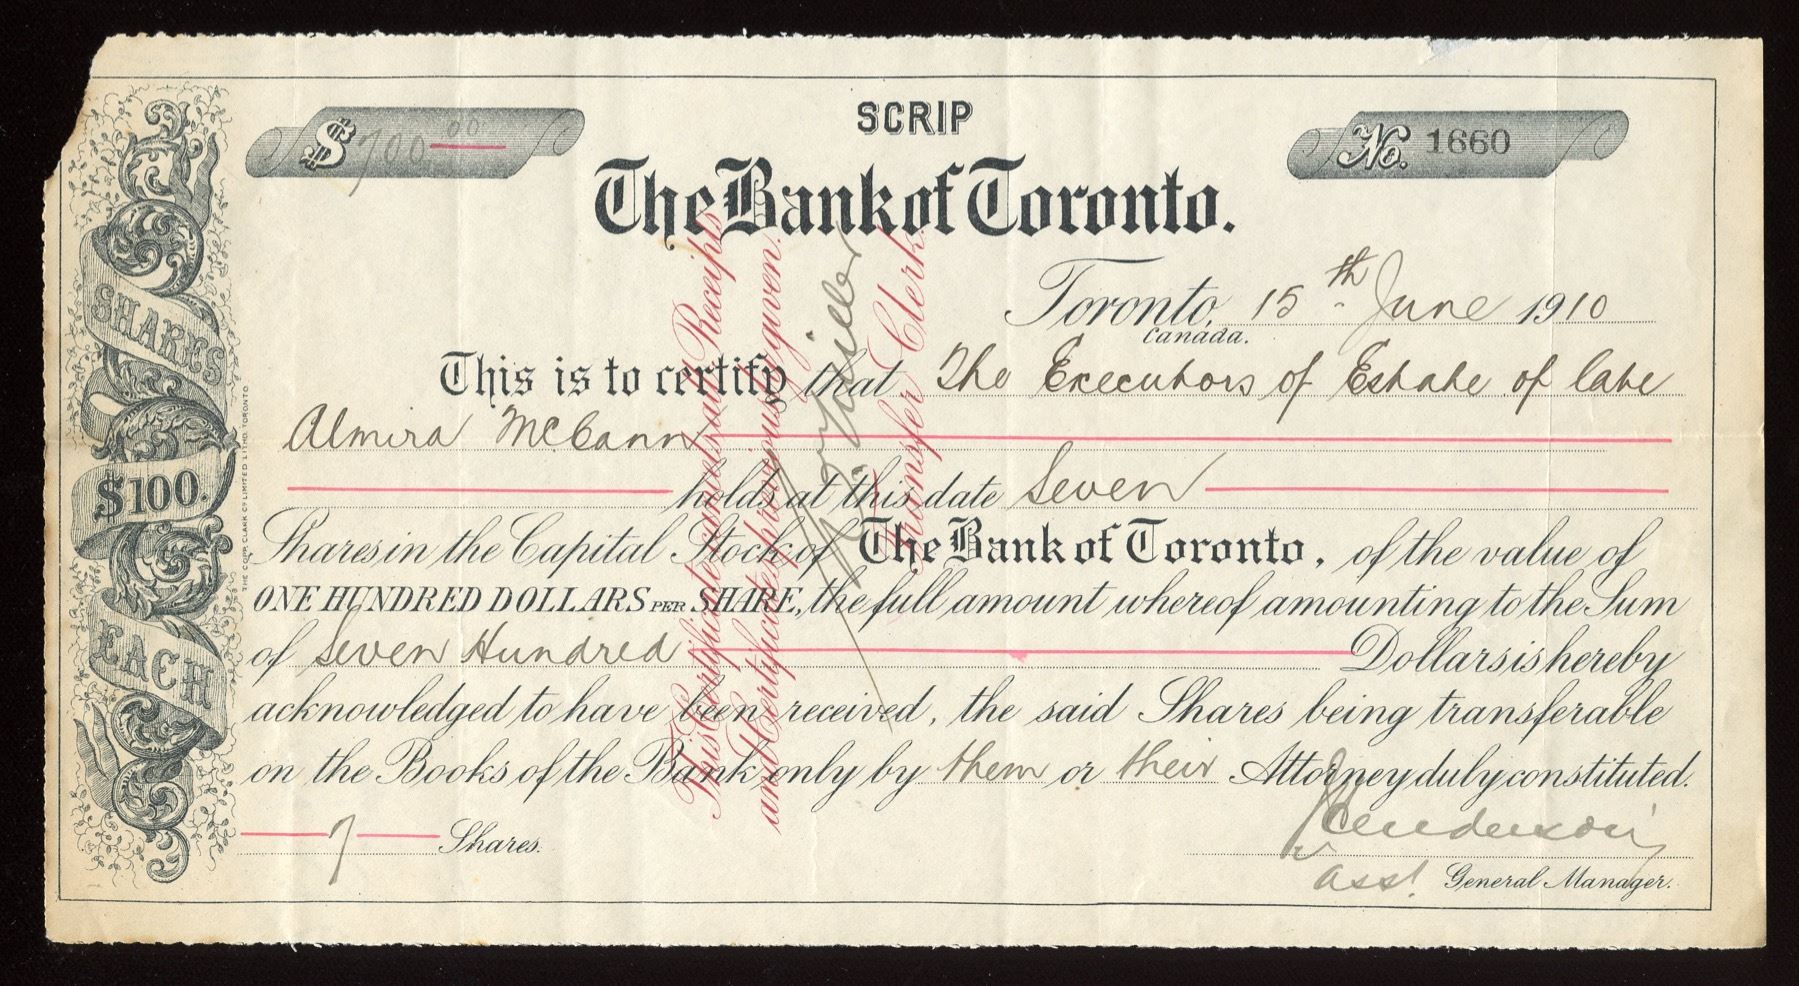 SCRIP
$ 700 00
No. 1660
The Bank of Toronto.
Toronto, 15th June 1910
Canada.
This is to certify that The Executors of Estate of late
Almira McCann
holds at this date Seven
Shares in the Capital Stock of The Bank of Toronto, of the value of
ONE HUNDRED DOLLARS PER SHARE, the full amount whereof amounting to the Sum
of Seven Hundred Dollars is hereby
acknowledged to have been received, the said Shares being transferable
on the Books of the Bank only by them or their Attorney duly constituted.
7 Shares.
Henderson
Asst General Manager.
SHARES
$100.
EACH
THE COPP, CLARK CY LIMITED LITHO. TORONTO
This Certificate cancels all Receipts
and Certificates previously given.
Transfer Clerk.